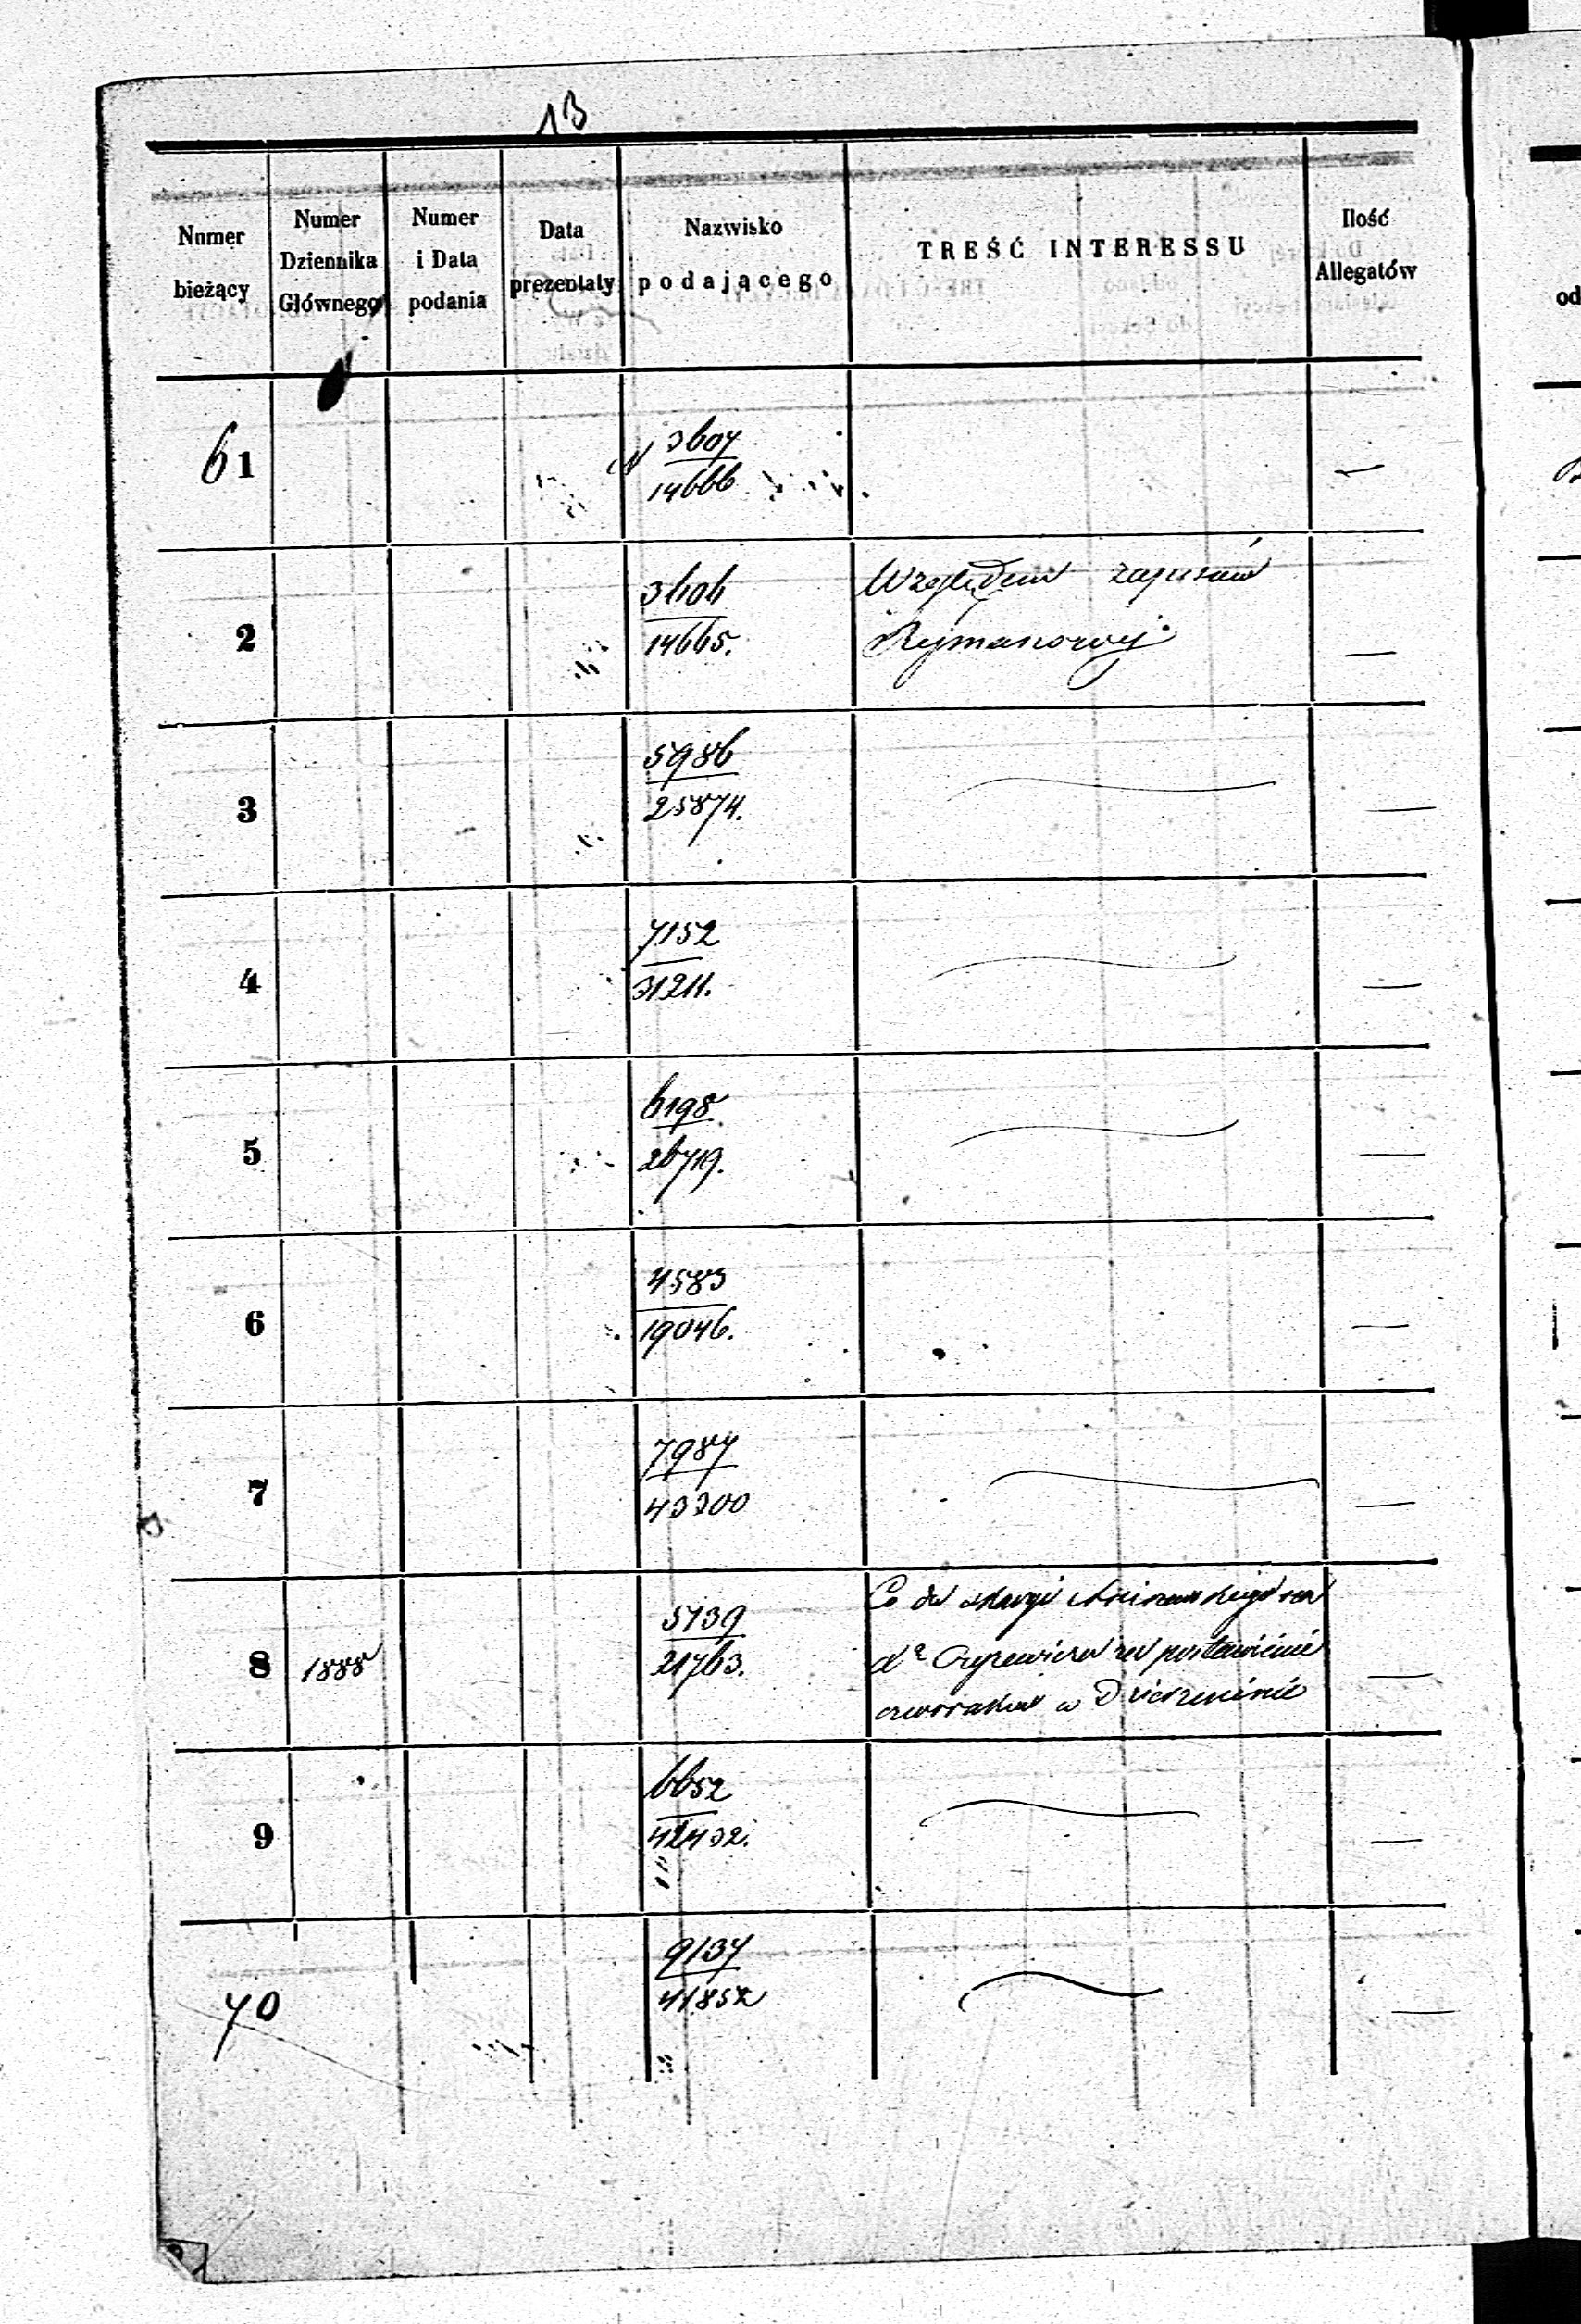 13
Numer bieżący
Numer Dziennika Głównego
Numer i Data podania
Data prezentaty
Nazwisko podającego
TREŚĆ INTERESSU
Ilość Allegatów
od
61 N 3607 —
14666
2 3606 Względem zapisów —
14665. Rejmanowej
3 5986 —
25874.
4 7152 —
31211.
5 6198 —
26719.
6 4583 —
19046.
7 7987 —
43300
8 1888 5139 Co do skargi na —
21763. za postawienie
czworaków w Dzierzeninie
9 6652 —
42432.
70 9137 —
41852